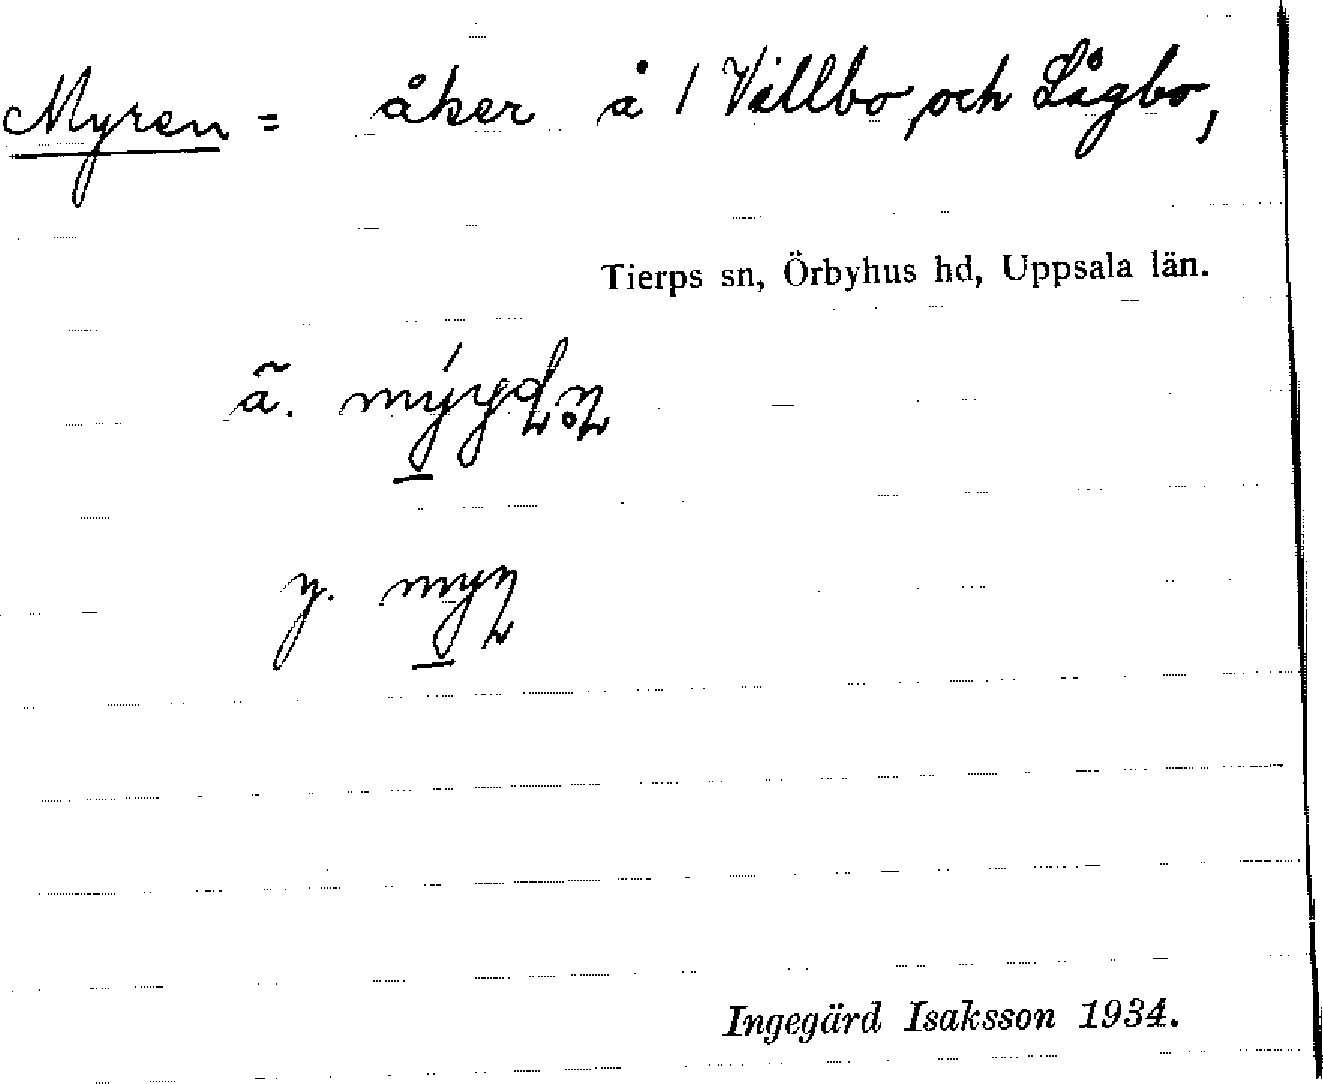 Myren = åker å 1 Villbo och Lågbo,
Tierps sn, Örbyhus hd, Uppsala län.
ä.
y.
Ingegärd Isaksson 1934.